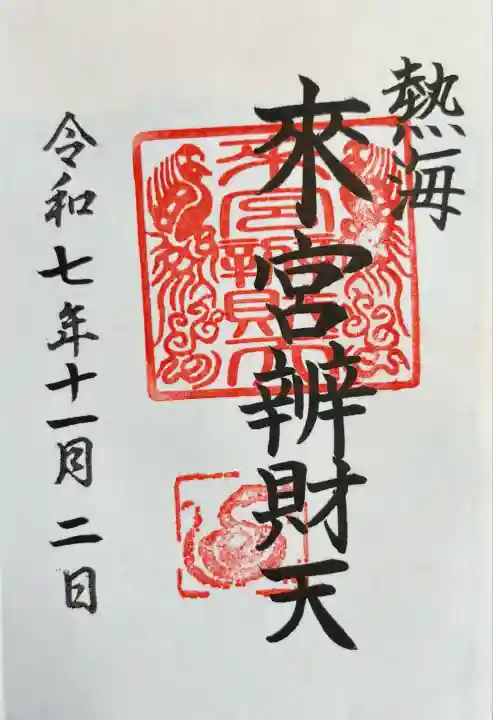 熱海
來宮辨財天
令和七年十一月二日